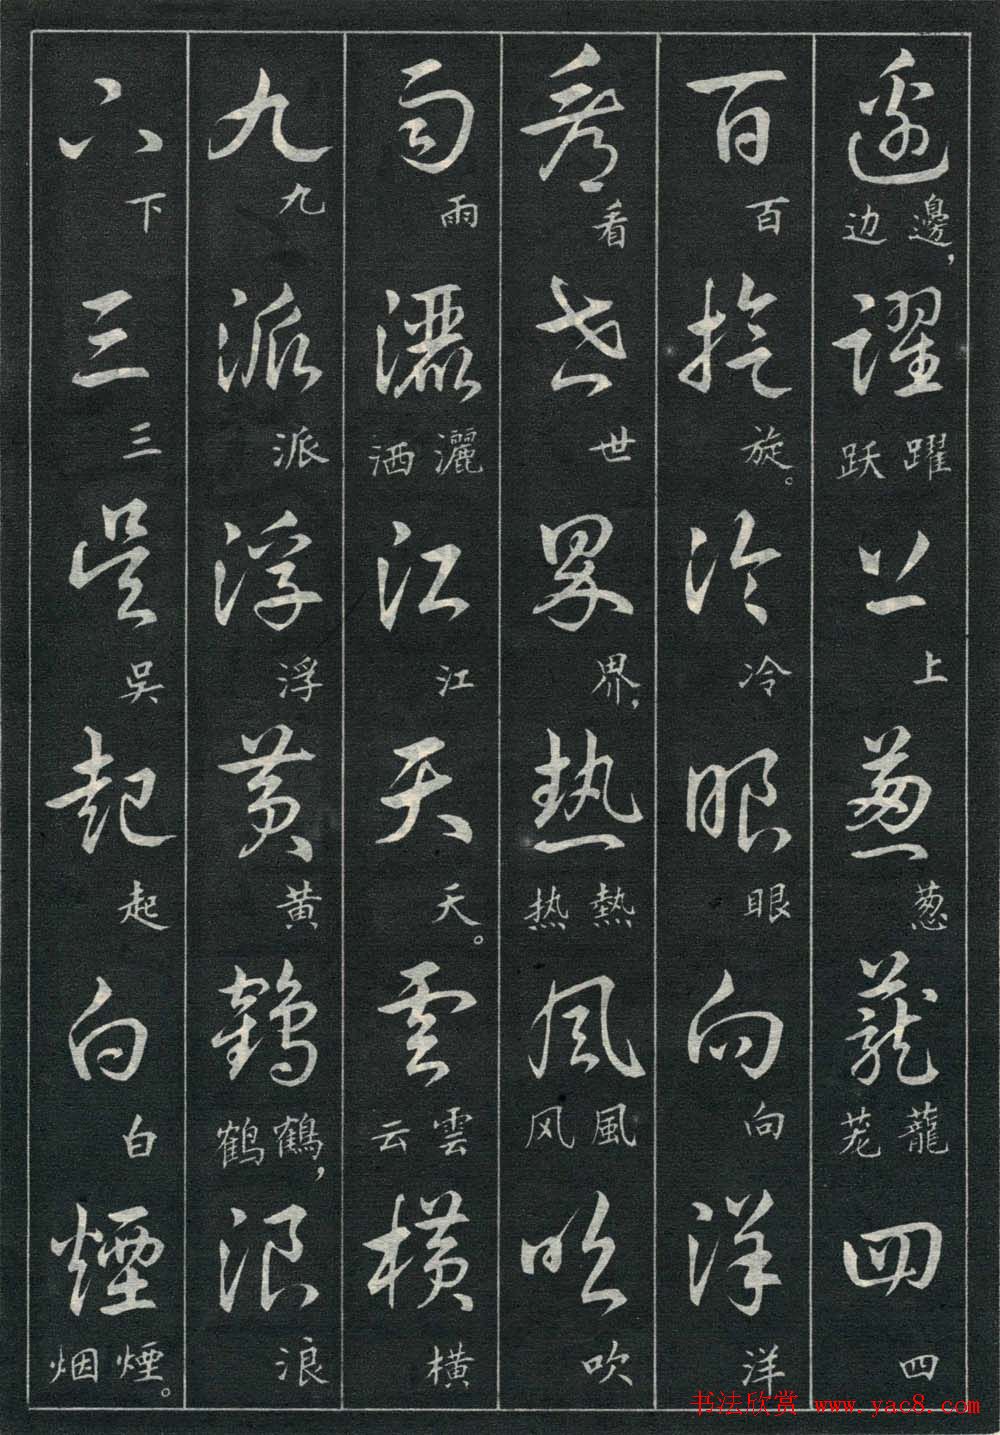 邊躍上葱蘢四
邊，边躍跃上葱蘢茏四
百旋冷眼向洋
百旋。冷眼向洋
看世界熱風吹
看世界，熱热風风吹
雨灑江天雲橫
雨灑洒江天。雲云横
九派浮黃鶴浪
九派浮黄鶴，鹤浪
下三吳起白煙
下三吳起白煙。烟
书法欣赏 www.yac8.com